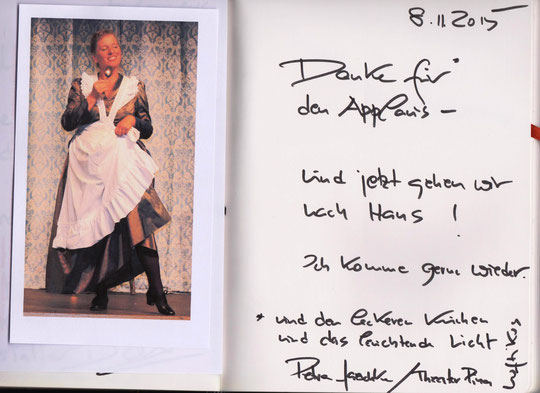 8.11.2015
Danke für*
den Applaus –
und jetzt gehen wir
nach Haus !
Ich komme gerne wieder.
* und den leckeren Kuchen
und das leuchtende Licht
Petra / Theater